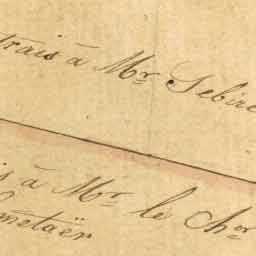 trais à Mr. Sebire
is à Mr. le Chr.
metaër